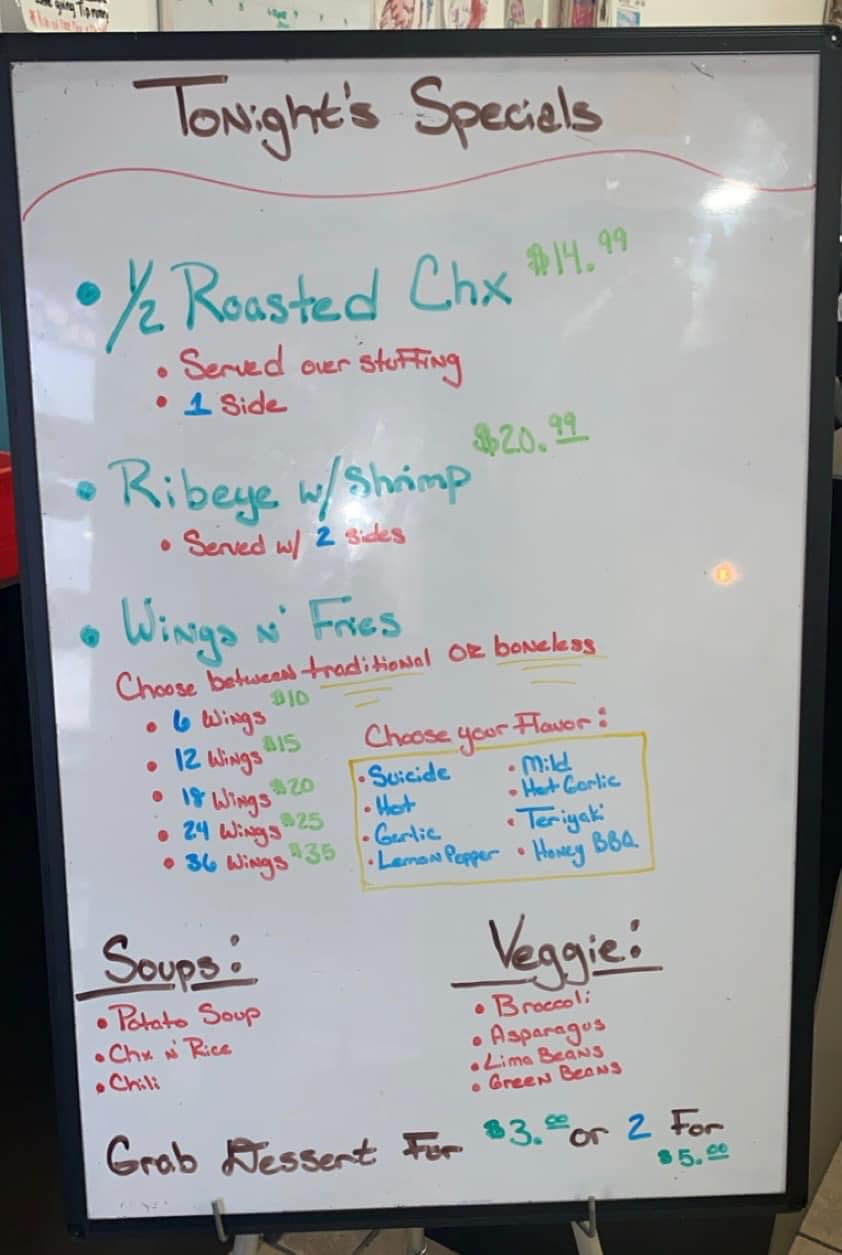 Tonight's Specials
• 1/2 Roasted Chx $14.99
• Served over stuffing
• 1 Side
• Ribeye w/ Shrimp $20.99
• Served w/ 2 sides
• Wings n' Fries
Choose between traditional or boneless
• 6 Wings $10
• 12 Wings $15
• 18 Wings $20
• 24 Wings $25
• 36 Wings $35
Choose your Flavor:
• Suicide
• Hot
• Garlic
• Lemon Pepper
• Mild
• Hot Garlic
• Teriyaki
• Honey BBQ
Soups:
• Potato Soup
• Chx n' Rice
• Chili
Veggie:
• Broccoli
• Asparagus
• Lima Beans
• Green Beans
Grab Dessert For $3.00 or 2 For
$5.00